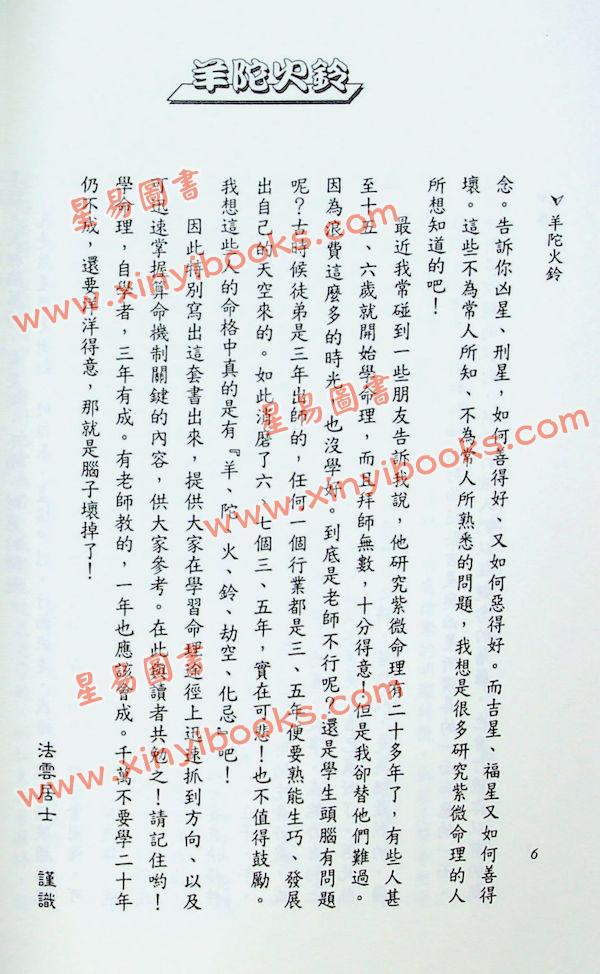 羊陀火鈴
▽羊陀火鈴
念。告訴你凶星、刑星，如何善得好、又如何惡得好。而吉星、福星又如何善得
壞。這些不為常人所知、不為常人所熟悉的問題，我想是很多研究紫微命理的人
所想知道的吧！
最近我常碰到一些朋友告訴我說，他研究紫微命理有二十多年了，有些人甚
至十五、六歲就開始學命理，而且拜師無數，十分得意！但是我卻替他們難過。
因為浪費這麼多的時光，也沒學好。到底是老師不行呢？還是學生頭腦有問題
呢？古時候徒弟是三年出師的，任何一個行業都是三、五年便要熟能生巧、發展
出自己的天空來的。如此消磨了六、七個三、五年，實在可悲！也不值得鼓勵。
我想這些人的命格中真的是有『羊、陀、火、鈴、劫空、化忌』吧！
因此特別寫出這套書出來，提供大家在學習命理途徑上迅速抓到方向、以及
可迅速掌握算命機制關鍵的內容，供大家參考。在此與讀者共勉之！請記住喲！
學命理，自學者，三年有成。有老師教的，一年也應該會成。千萬不要學二十年
仍不成，還要洋洋得意，那就是腦子壞掉了！
法雲居士 謹識
6
星易圖書
www.xinyibooks.com
星易圖書
www.xinyibooks.com
星易圖書
www.xinyibooks.com